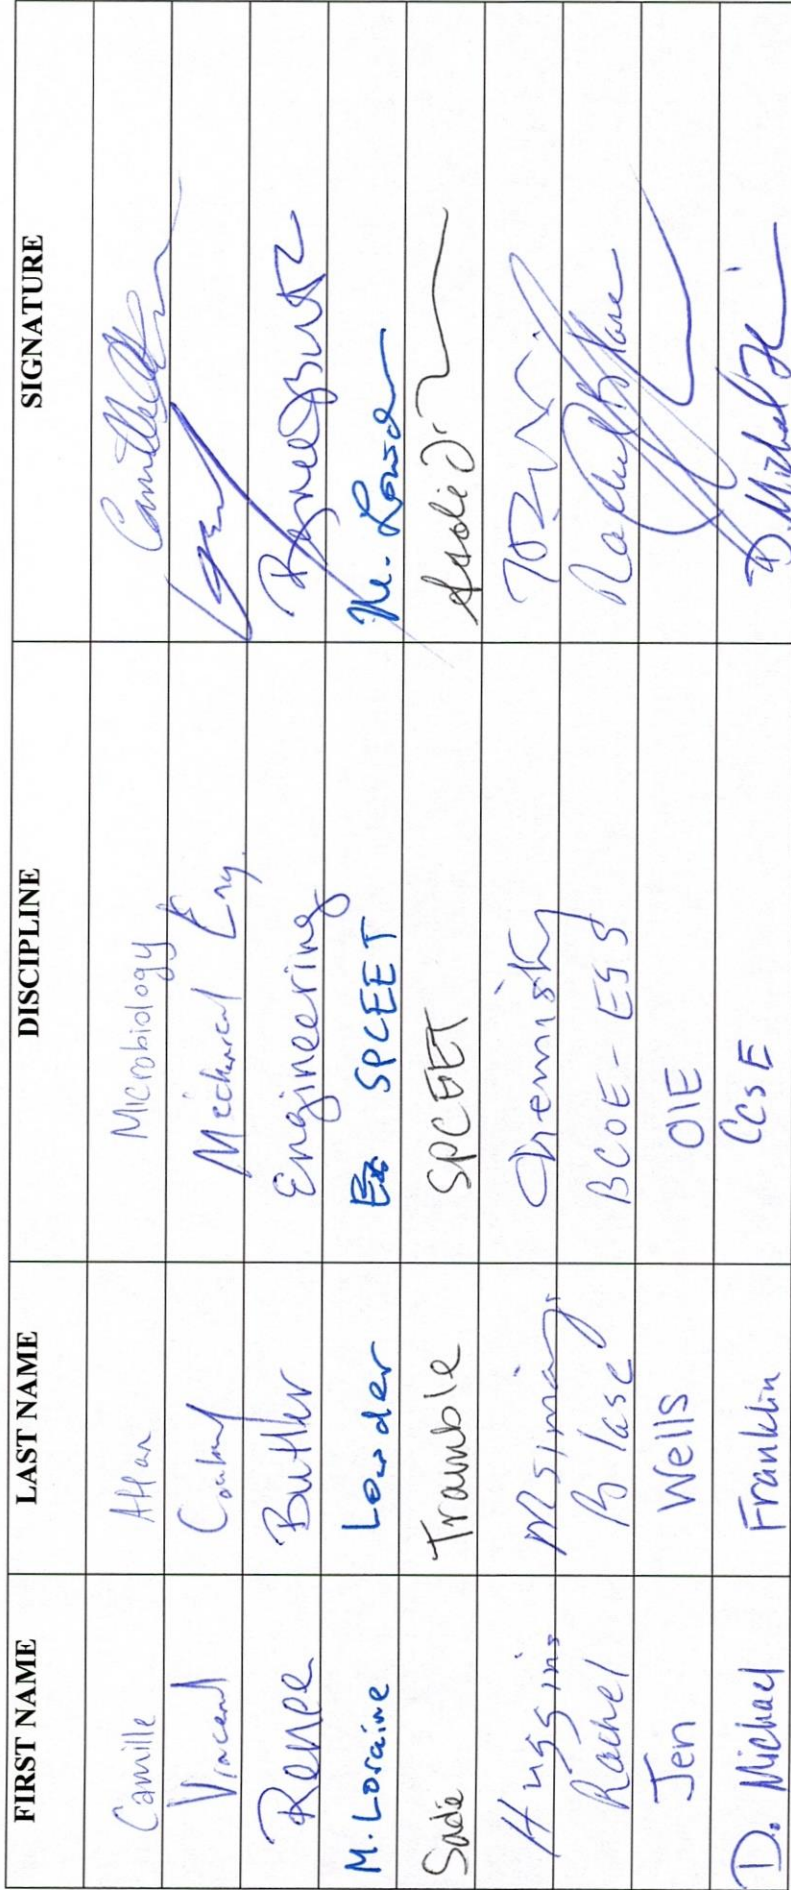 FIRST NAME LAST NAME DISCIPLINE SIGNATURE
Camille Microbiology
Vincent Mechanical Eng.
Renee Butler Engineering
M. Loraine Lowder SPCEET M. Lowder
Sadie Tramble SPCEET
Huggins Msimanga Chemistry
Rachel Blase BCOE - ESS Rachel Blase
Jen Wells OIE
D. Michael Franklin CCSE D. Michael